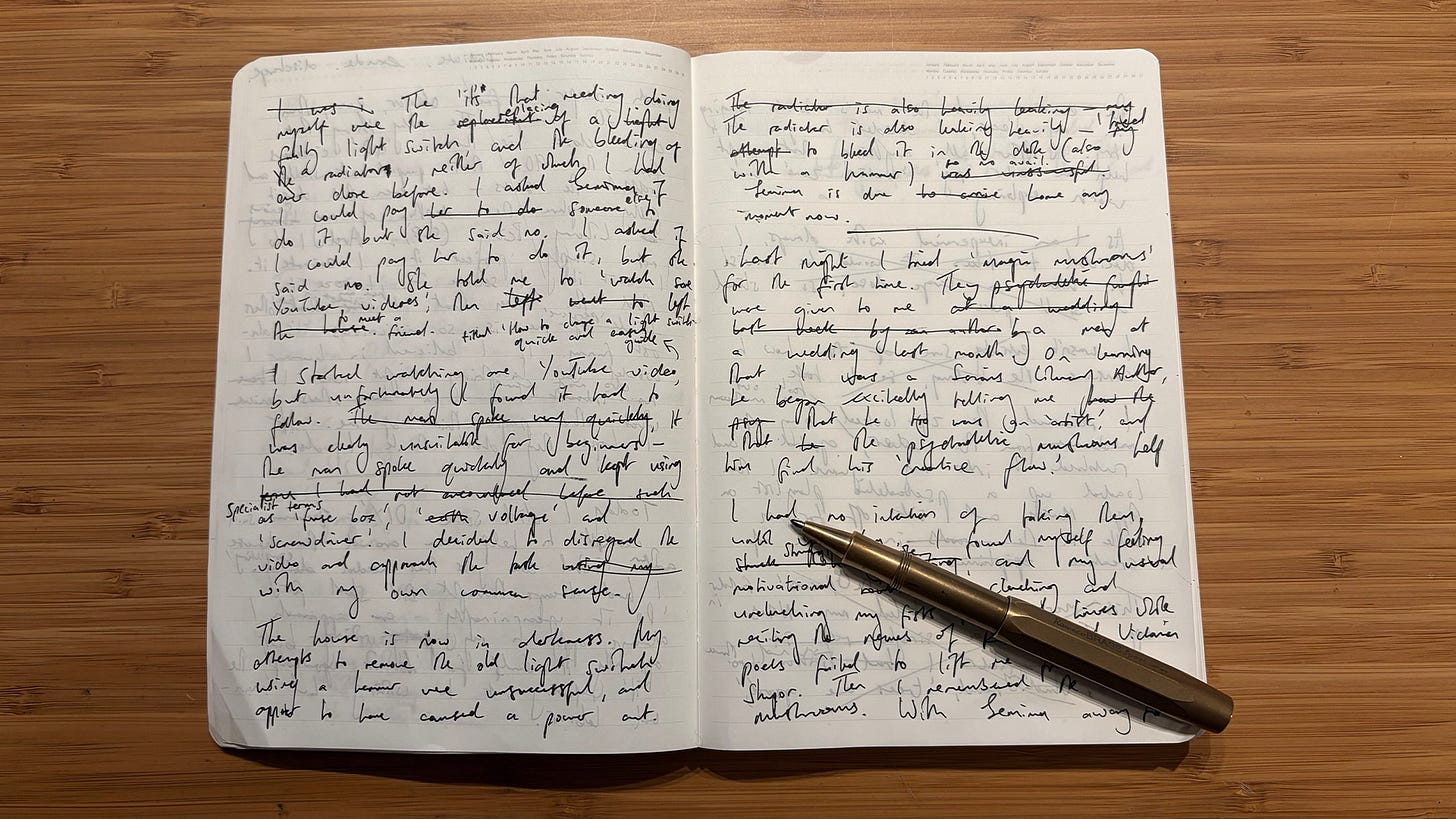 I was i The 'its' that needing doing
myself were the replacement replacing of a light
faulty light switch and the bleeding of
the a radiators, neither of which I had
ever done before. I asked Semina if
I could pay her to do someone else to
do it, but she said no. I asked if
I could pay her to do it, but she
said no. She told me to 'watch some
YouTube videos', then left went to left
the house to meet a friend.
titled 'How to change a light switch
quick and easy guide'
I started watching one YouTube video,
but unfortunately I found it hard to
follow. The man spoke very quickly, It
was clearly unsuitable for beginners –
the man spoke quickly and kept using
terms I had not encountered before such
specialist terms
as 'fuse box', 'voltage' and
'screwdriver'. I decided to disregard the
video and approach the task using my
with my own common sense.
The house is now in darkness. My
attempts to remove the old light switch
using a hammer were unsuccessful, and
appear to have caused a power cut.
The radiator is also heavily leaking – my
The radiator is also leaking heavily – I tried
attempt to bleed it in the dark (also
with a hammer) was unsuccessful. to no avail.
Semina is due to arrive home any
moment now.
Last night I tried 'magic mushrooms'
for the first time. They psychedelic
were given to me at a wedding
last week by an author by a man at
a wedding last month. On learning
that I was a Serious Literary Author,
he began excitedly telling me how the
psy that he too was an 'artist', and
that he the psychedelic mushrooms help
him find his 'creative flow'.
I had no intention of taking them,
until found myself feeling
stuck and my usual
motivational clenching and
unclenching my fists times while
reciting the names of Victorian
poets failed to lift me
stupor. Then I remembered the
mushrooms. With Semina away to